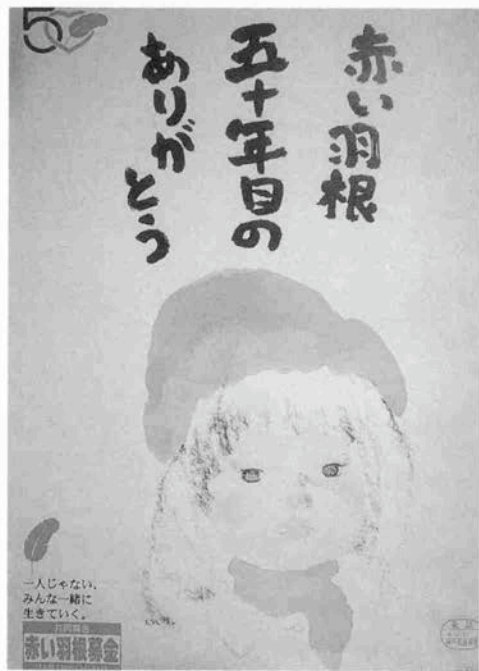 赤い羽根
五十年目の
ありが
とう
50
一人じゃない。
みんな一緒に
生きていく。
共同募金
赤い羽根募金